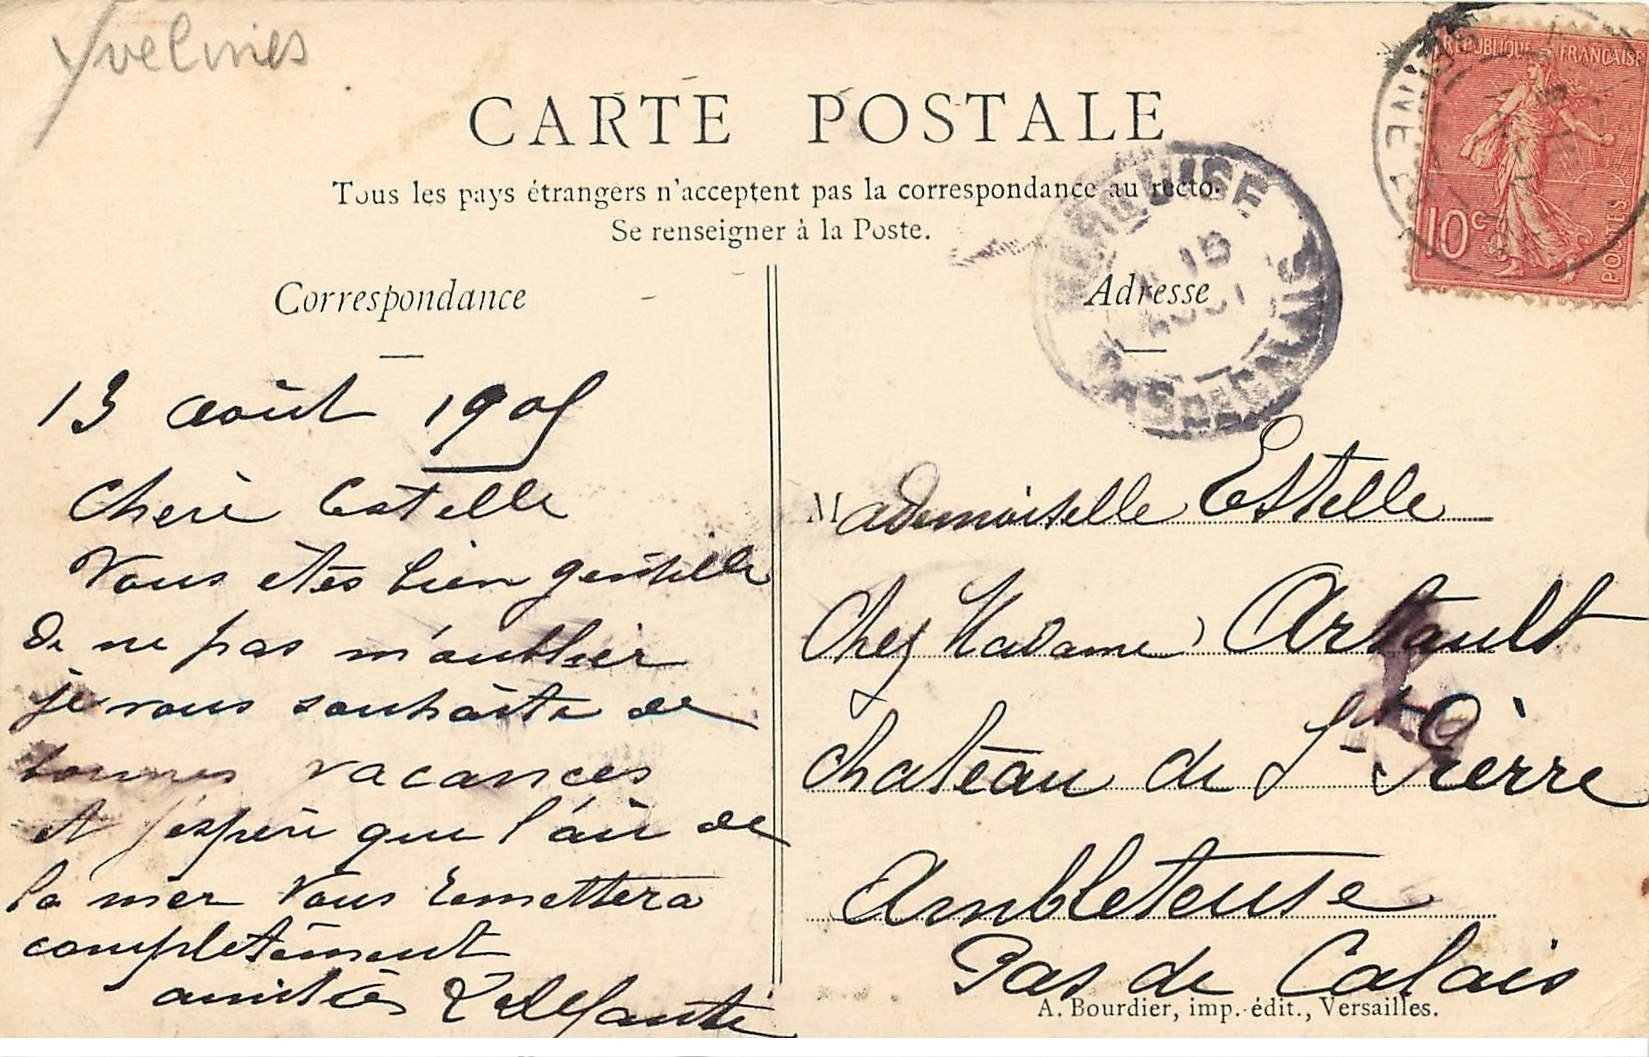 Yvelines
CARTE POSTALE
Tous les pays étrangers n'acceptent pas la correspondance au recto.
Se renseigner à la Poste.
Correspondance
13 août 1905
Chère Estelle
Vous êtes bien gentille
de ne pas m'oublier
je vous souhaite de
bonnes vacances
et j'espère que l'air de
la mer vous remettera
complètement
amitiés
RÉPUBLIQUE FRANÇAISE
10c
POSTES
MARQUISE
15
PAS DE CALAIS
Adresse
Mademoiselle Estelle
Chez Madame Artault
Château de St Pierre
Ambleteuse
Pas de Calais
A. Bourdier, imp.-édit., Versailles.